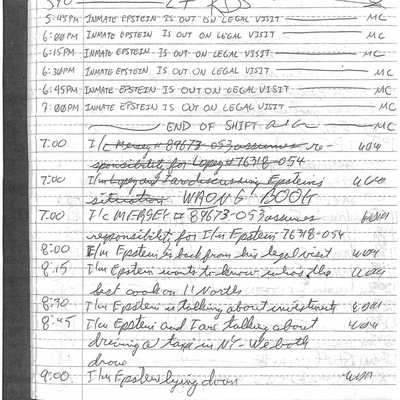 5:45PM INMATE EPSTEIN IS OUT ON LEGAL VISIT MC
6:00PM INMATE EPSTEIN IS OUT ON LEGAL VISIT MC
6:15PM INMATE EPSTEIN IS OUT ON LEGAL VISIT MC
6:30PM INMATE EPSTEIN IS OUT ON LEGAL VISIT MC
6:45PM INMATE EPSTEIN IS OUT ON LEGAL VISIT MC
7:00PM INMATE EPSTEIN IS OUT ON LEGAL VISIT MC
END OF SHIFT MC
7:00 I/c Mersey # 89673-053 assumes re-
sponsibility for Lopez # 76318-054
7:00 I/m Lopez and I are discussing Epstein's
situation WRONG BOOK
7:00 I/c MERSEY # 89673-053 assumes
responsibility for I/m Epstein 76318-054
8:00 I/m Epstein is back from his legal visit
8:15 I/m Epstein wants to know who is the
best cook on 11 North
8:30 I/m Epstein is talking about investments
8:45 I/m Epstein and I are talking about
driving a taxi in NY - We both
drove
9:00 I/m Epstein lying down